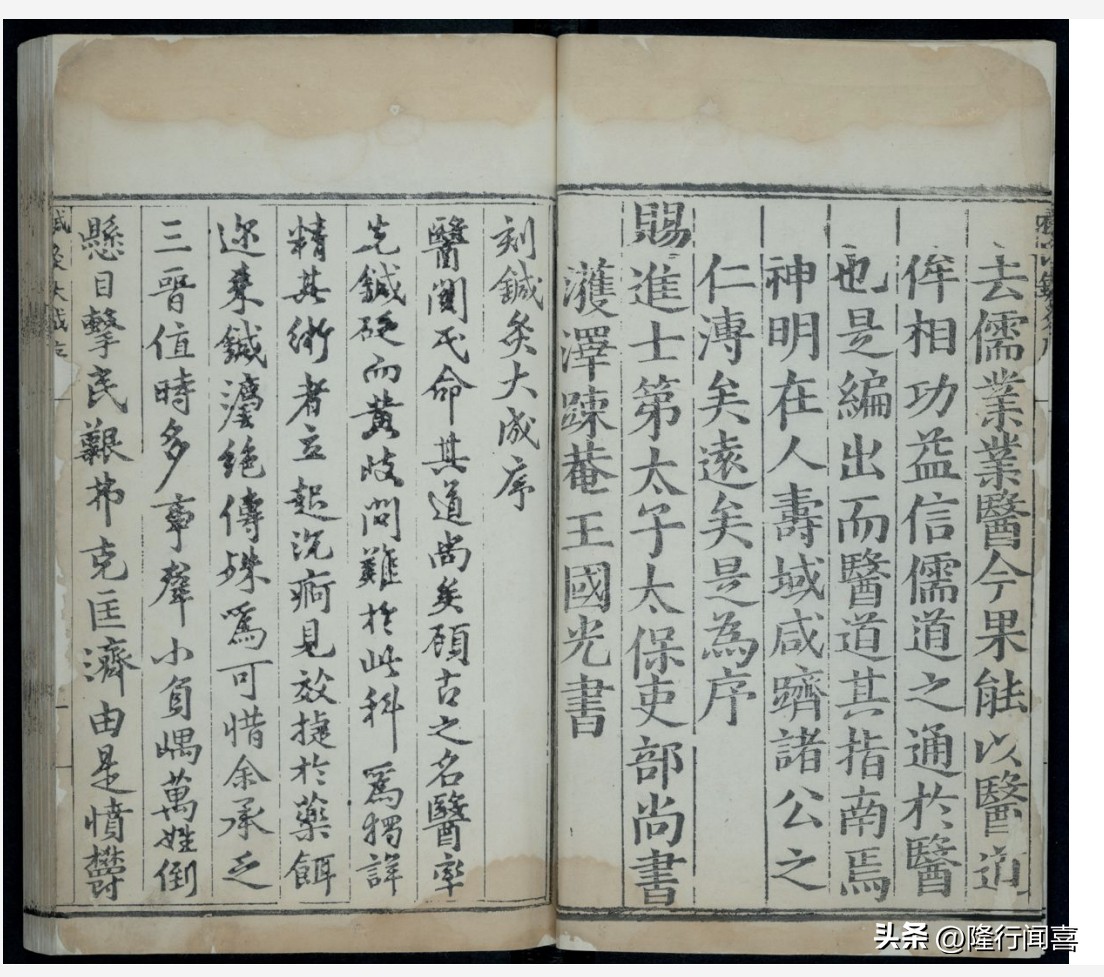 去儒業業醫今果能以醫道
侔相功益信儒道之通於醫
也是編出而醫道其指南焉
神明在人壽域咸躋諸公之
仁溥矣遠矣是為序
賜進士第太子太保吏部尚書
濩澤疎菴王國光書
刻鍼灸大成序
醫關民命其道尚矣顧古之名醫率
先鍼砭而黃岐問難於此科爲獨詳
精其術者立起沉痾見效捷於藥餌
迩來鍼法絕傳殊爲可惜余承乏
三晉值時多事羣小負嵎萬姓倒
懸目擊民艱弗克匡濟由是憤鬱
鍼灸大成序
头条 @隆行闻喜